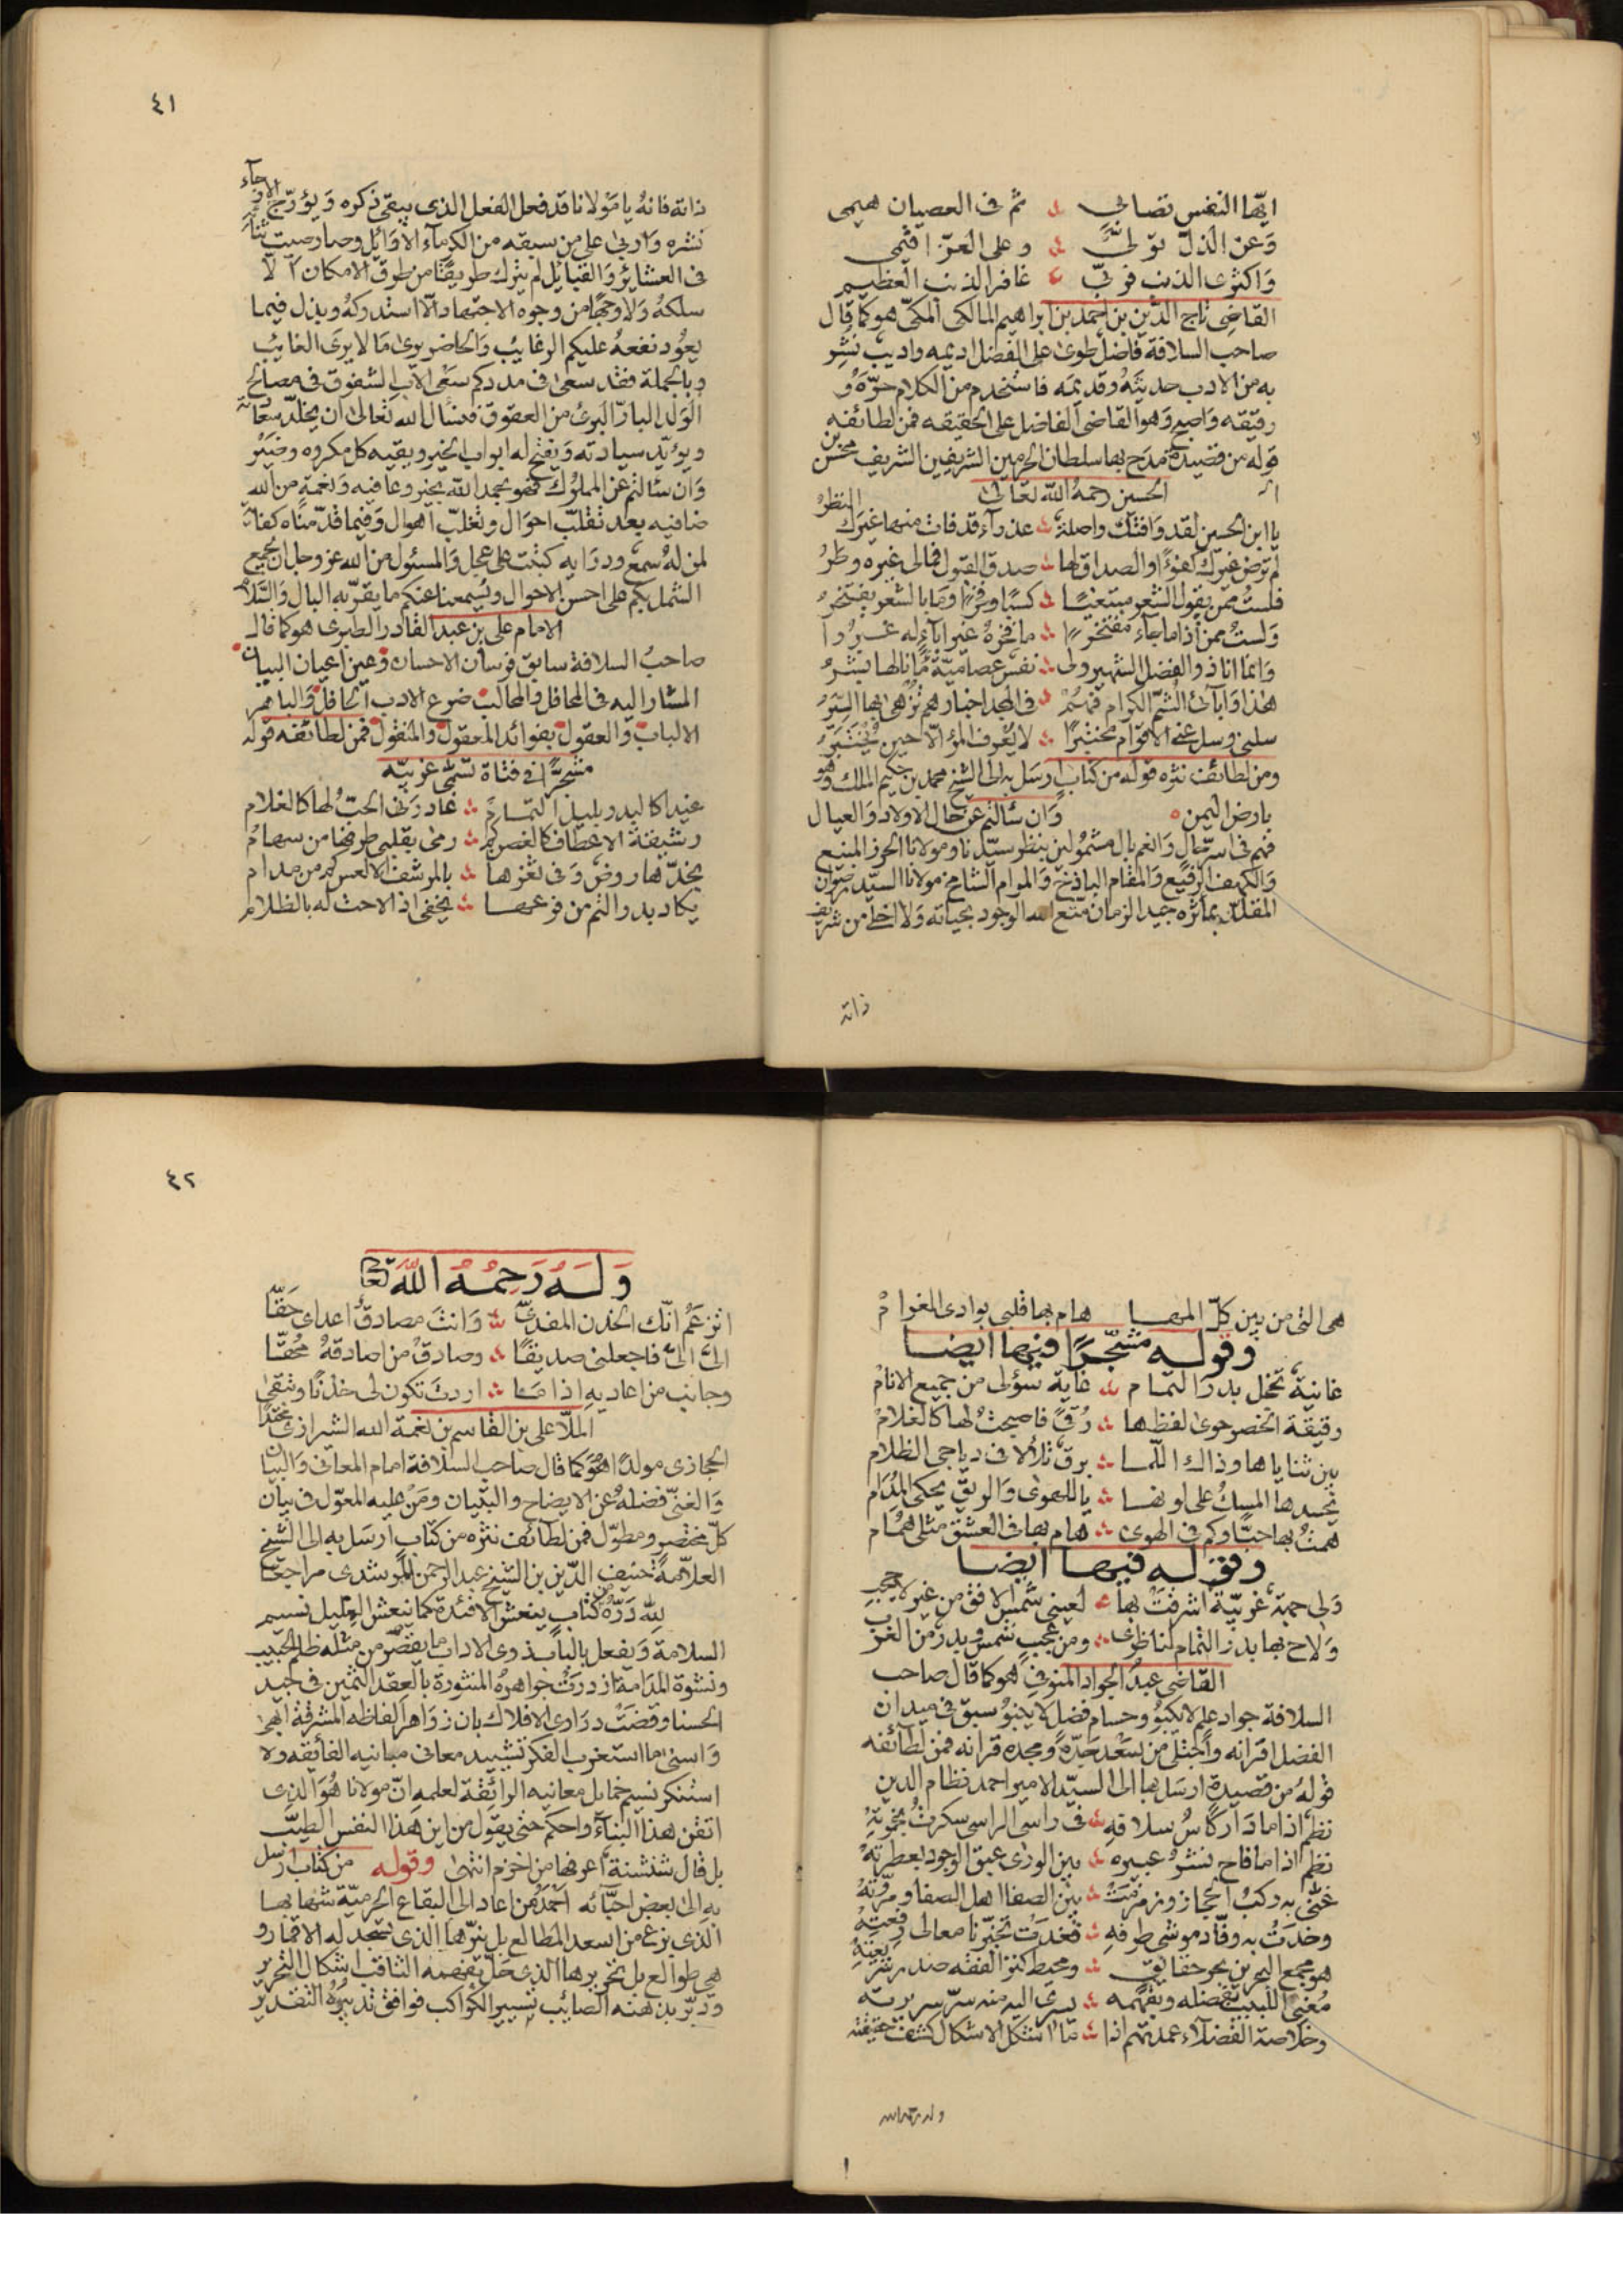 ايّها النفس تصابي ثم فى العصيان هيمى
وَعن الذلّ تولّى وعلى العزّ اقيمى
وَاكثرى الذنب فربّى غافر الذنب العظيم
القاضى تاج الدّين بن احمد بن ابراهيم المالكى المكىّ هو كما قال
صاحب السلافة فاضل طوى على الفضل اديمه واديب نشر
به من الادب حديثهُ وقديمَه فاستخدم من الكلام حرّهُ و
رقيقه وَهو القاضى الفاضل على الحقيقه فمن لطائفه
قوله من قصيدة مدح بها سلطان الحرمين الشريفين الشريف محسن بن
الحسين رحمهُ اللّه تعالى
يا ابن الحسين لقد وَافتك واصلة عذرآء قد فات منها غيرك النظرُ
لم ترض غيرك كفوًا والصداق لها صدق القبول فمالى غيره وطرُ
فلستُ ممّن يقول الشعر مبتغيًا كسبًا وما بالشعر يفتخرُ
وَلستُ ممن اذا ما جاء مفتخرًا ما فخرهُ غير آباء له
وَانما انا ذو الفضل الشهير ولى نفس عصاميّة ما نالها بشرُ
هذا وَابآئ الشمّ الكرام فهمُ فى المجد اخبارهم تزهى بها السيرُ
سلنى وسل عنى الاقوام مختبرًا لا يُعرف المرؤ الّا حين يُختبرُ
ومن لطائف نثره قوله من كتاب ارسَل به الى الشيخ محمد بن حكيم الملك وهو
بارض اليمن وَان سئالتم عن حال الاولاد وَالعيال
فهم فى اسرّ حالٍ وَانعم بال مشمُولين بنظر سيّدنا ومولانا الحرز المنيع
وَالكهف الرفيع وَالمقام الباذخ وَالمرام الشامخ مولانا السيّد رضوان
المقلّد بمآثره جيد الزمان متع الله الوجود بحياته وَلا اخلى من شريف
ذاته
٤١
ذاته فانهُ يا مَوْلانا قد فعل الفعل الذى يبقى ذكره وَيؤرّج الارجآء
نشره وَاربى على من سبقه من الكرمآء الاوَايل وصار صيت ثنآءه
فى العشائر وَالقبايل لم يترك طريقًا من طرق الامكان الّا
سلكهُ وَلا وجهًا من وجوه الاجتهاد الّا استدركهُ وبذل فيما
يعوُد نفعهُ عليكم الرغايُب وَالحاضر يرىٰ مَا لا يرىٰ الغايُب
وبالجملة فقد سعىٰ فى مددكم سَعْى الاب الشفوق فى مصالح
الوَلد البارّ البرئ من العقوق فنسئال الله تعالىٰ ان يخلّد سعادته
ويؤيّد سيادته وَيفتح له ابواب الخير ويقيه كل مكروه وضير
وَان سئالتم عن المملوُك فهو بحمد اللّه بخير وعافيه وَنعمةٍ من الله
ضافيه بعد تقلّب احوَال وتغلّب اهوال وَفيما قدّمناه كفاية
لمن لهُ سمع ودرَايه كتبت على عجل وَالمسئول من اللّه عز وجل ان يجمع
الشمل بكم على احسن الاحوال ويُسمعنا عنكم ما يقرّبه البال وَالسّلام
الامام على بن عبد القادر الطبرى هو كما قال
صاحبُ السلافة سابق فرسان الاحسان وعين اعيان البيان
المشار اليه فى المحافل والمحالب ضرع الادب الحافل وَالباهر
الالباب والعقول بفوائد المعقول والمنقول فمن لطائفه قوله
مشجّرًا فى فتاة تسمّى غربيّه
غيدا كالبدر بليل التمام غادرنى الحبّ لها كالغلام
رشيقة الاعطاف كالغصن كم رمىٰ بقلبى طرفها من سهام
بخدّها روض وَفى ثغرها بالمرشف الالعس كم من مدام
يكاد بدر التم من فرعها يخفى اذا لاحت له بالظلام
هى التى من بين كلّ المها هام بها قلبى بوادى الغرامْ
وقوله مشجّرًا فيها ايضا
غانية تخجل بدر التمام غاية سؤلى من جميع الانام
رقيقة الخصر حوىٰ لفظها رُقىً فاصبحتُ لها كالغلامْ
بين ثناياها وذاك اللّما برق تلالا فى دياجى الظلام
يحسدها المسكُ على لونها يا للهوىٰ وَالريق يحكى المُدام
همتُ بها حبًّا وكم فى الهوىٰ هام بها فى العشق مثلى هُمام
وقوله فيها ايضا
وَلى جهة غربيّة اشرقت بها لعينى شمس الافق من غير لا حجب
وَلاح بها بدر التمام لناظرى ومن عجبٍ شمس وبدر من الغرب
القاضى عبدُ الجواد المنوفى هو كما قال صاحب
السلافة جواد علم لا يكبوُ وحسام فضل لا ينبوُ سبق فى ميدان
الفضل اقرانه وَاجتلى من سَعْد جَدّه ومجده قرانه فمن لطآئفه
قولهُ من قصيدة ارسَل بها الى السيّد الامير احمد نظام الدين
نظمٌ اذا ما دَار كاسُ سلافه فى راس الراسى سكرتُ بخمرتِهْ
نظمٌ اذا ما فاح نشرُ عبيره بين الورى عبق الوجود بعطرتِهْ
غنّى به ركبُ الحجاز وزمزمت بين الصفا اهل الصفا ومرّوتِهْ
وخدَتْ به وقّاد موشى طرفهِ فغدَت تخبّرنا معالى رفعتِهْ
هو مجمع البحرين بحر حقايقٍ ومحيط كنز الفقه صدر شريعتِهْ
مُغنى اللبيب بفضله وبفهمه يسرى اليه منه سرّ سريرتِهْ
وخلاصة الفضلآء عمدتهم اذا ما اشكل الاشكال كشف حقيقته
وله رحمه الله
٤٢
وَلهُ رَحِمُهُ اللّه تعا
اتزعُمُ انّك الخدن المفدّىٰ وَانتَ مصادقٌ اعداى حَقّا
الىّ الىّ فاجعلنى صديقًا وصادِقْ من اصادقهُ مُحقّا
وجانِب من اعاديهِ اذا مَا اردتَ تكون لى خدْنًا وتبقىٰ
الملّا على بن القاسم بن نعمة اللّه الشيرازى محتدًا
الحجازى مولدًا هُوَ كما قال صاحب السلافة امام المعانى وَالبيان
وَالغنىّ فضلهُ عن الايضاح والتبيان ومَنْ عليه المعوّل فى بيان
كلّ مختصر ومطوّل فمن لطآئف نثره من كتاب ارسَل به الى الشيخ
العلّامة حنيف الدّين بن الشيخ عبد الرحمن المُرشدى مراجعًا
للّه دَرّهُ من كتاب ينعش الافئدة كما ينعش العليل نسيم
السلامة وَيفعل بالباب ذوى الاداب ما يقصّر من مثله ظلم الحبيب
ونشوة المدَامة ازدرَتْ جواهرهُ المنثورة بالعقد الثمين فى جيد
الحسنا وقضَتْ درَارى الافلاك بان زوَاهر الفاظه المشرقة ابهى
وَاسنىٰ ما استغرب الفكر تشييد معانى مبانيه الفائقه ولا
استنكر نسيم خمايل معانيه الرائقة لعلمهِ انّ مولانا هُوَ الذى
اتقن هذا البنآء واحكَم حتى يقول من اين هذا النفس الطيّب
بل قال شنشنة اعرفها من اخزم انتهىٰ وقوله من كتاب ارسل
به الىٰ بعض احبّائه احْمدُ من اعاد الى البقاع الحرميّة شهابها
الذى بزغ من اسعد المطالع بل نيّرها الذى تسجد له الاقمار و
هى طوالع بل تحريرها الذى حَلّ بفهمه الثاقب اشكال التحرير
ودبّر بذهنه الصائب تسيير الكواكب فوافق تدبيرُهُ التقدير